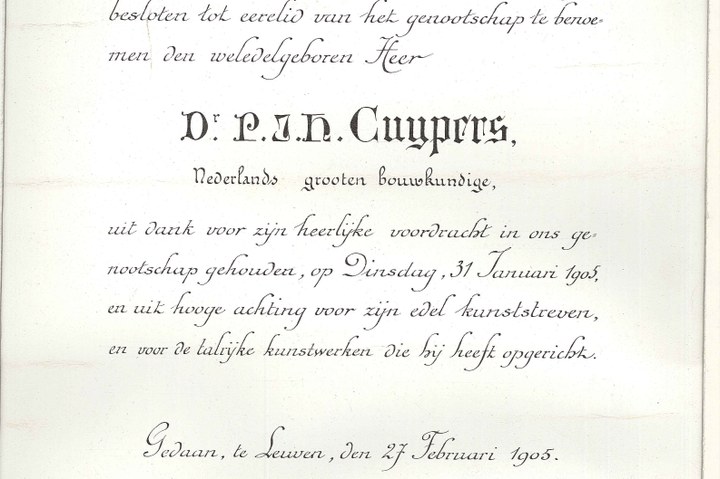 besloten tot eerelid van het genootschap te benoe-
men den weledelgeboren Heer
Dr. P.J.H. Cuypers,
Nederlands grooten bouwkundige,
uit dank voor zijn heerlijke voordracht in ons ge-
nootschap gehouden, op Dinsdag, 31 Januari 1905,
en uit hooge achting voor zijn edel kunststreven,
en voor de talrijke kunstwerken die hij heeft opgericht.
Gedaan, te Leuven, den 27 Februari 1905.